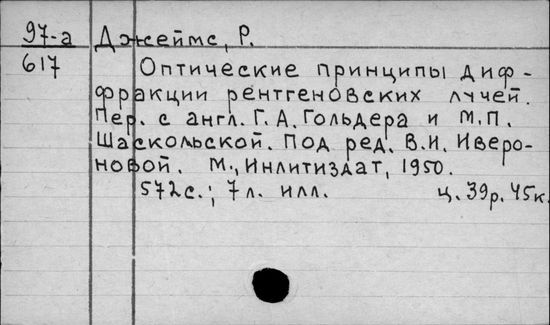 97-а Джеймс, Р.
617 Оптические принципы диф-
фракции рентгеновских лучей.
Пер. с англ. Г.А. Гольдера и М.П.
Шаскольской. Под ред. В.И. Иверо-
новой. М., Инлитиздат, 1950.
572с.; 7л. илл. ц. 39р. 45к.